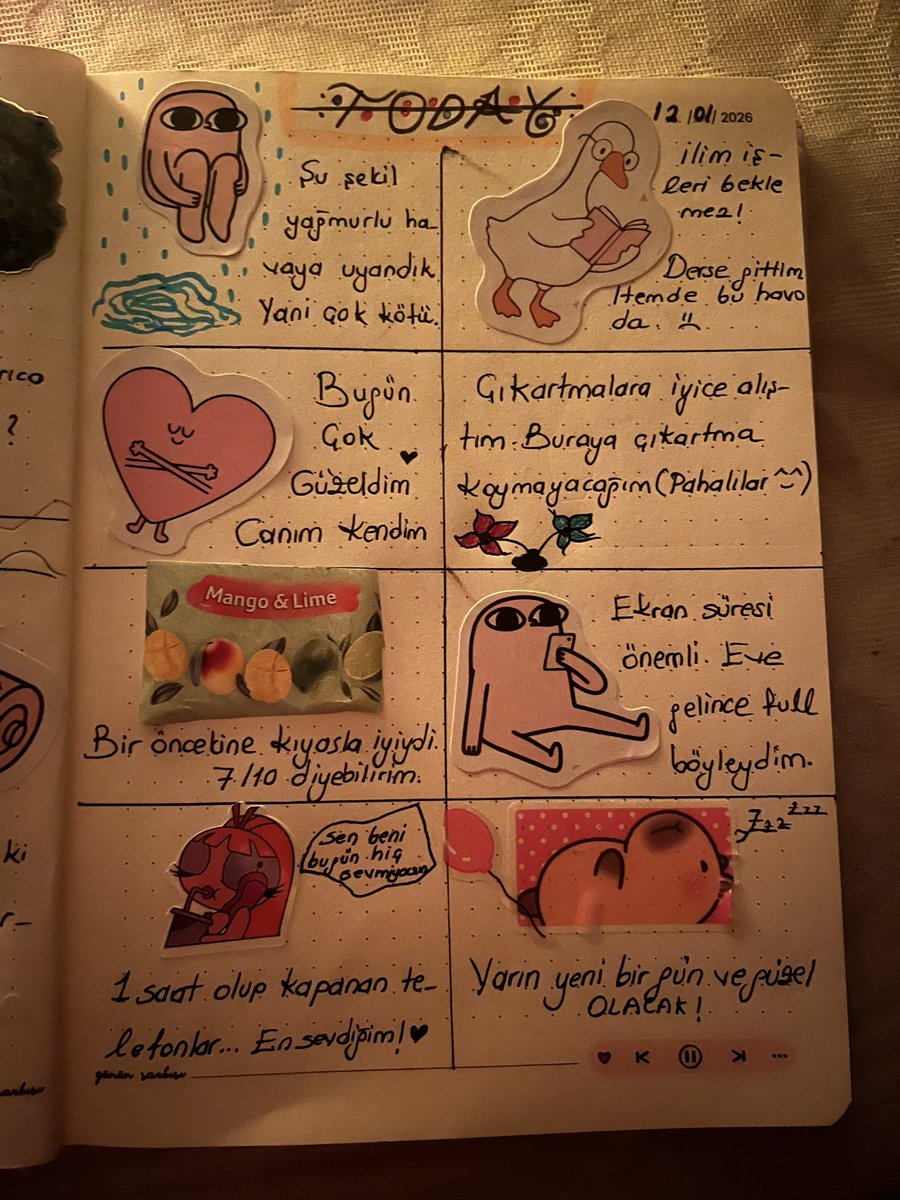 TODAY
12/01/2026
Şu şekil
yağmurlu ha-
vaya uyandık
Yani çok kötü.
ilim iş-
leri bekle
mez!
Derse gittim
Hemde bu hava
da.
Bugün
Çok
Güzeldim
Canım kendim
Çıkartmalara iyice alış-
tım. Buraya çıkartma
koymayacağım (Pahalılar ^^)
Mango & Lime
Bir öncekine kıyasla iyiydi.
7/10 diyebilirim.
Ekran süresi
önemli. Eve
gelince full
böyleydim.
Sen beni
bugün hiç
sevmiyorsun
1 saat olup kapanan te-
lefonlar... En sevdiğim!
zzz zzz
Yarın yeni bir gün ve güzel
OLACAK!
günün şarkısı
rico
?
ki
r-